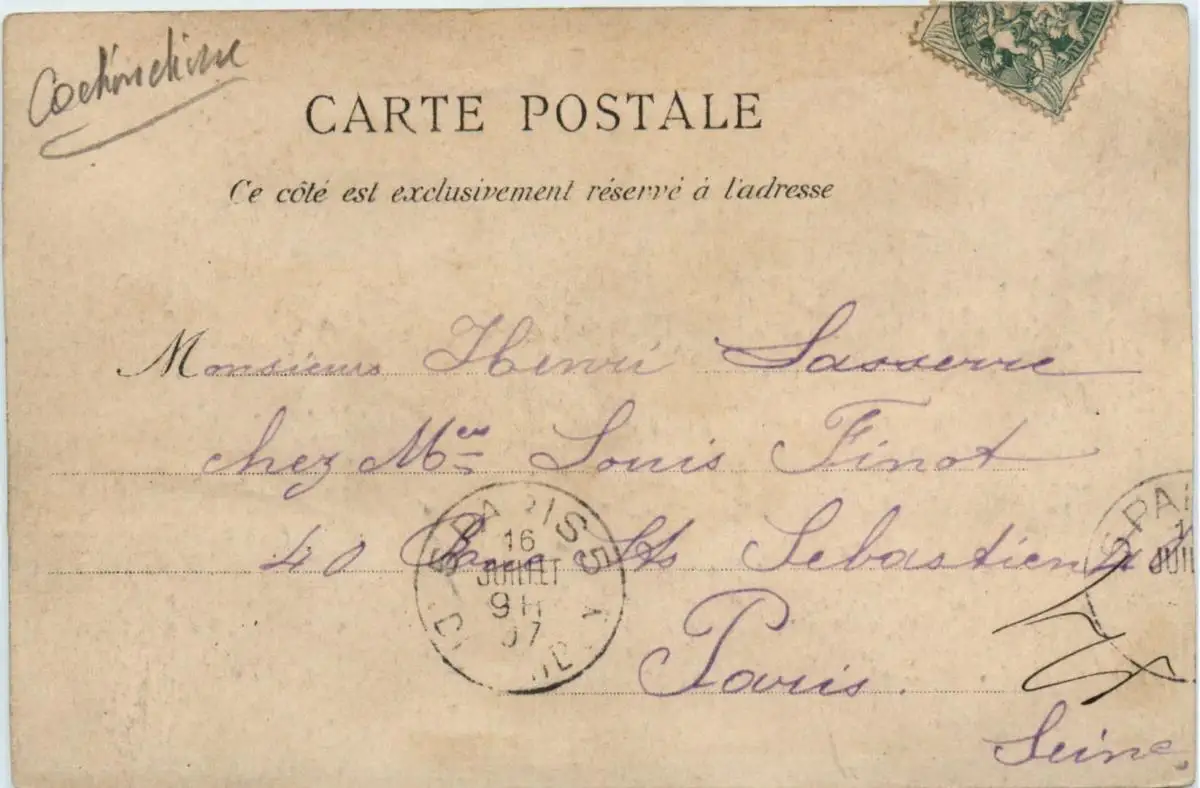 Cochinchine
CARTE POSTALE
Ce côté est exclusivement réservé à l'adresse
Monsieur Henri Lasserre
chez Mme Louis Finot
40 Rue St Sebastien
Paris.
Seine
PARIS 5
16
JUILLET
9H
07
PA
JUIL